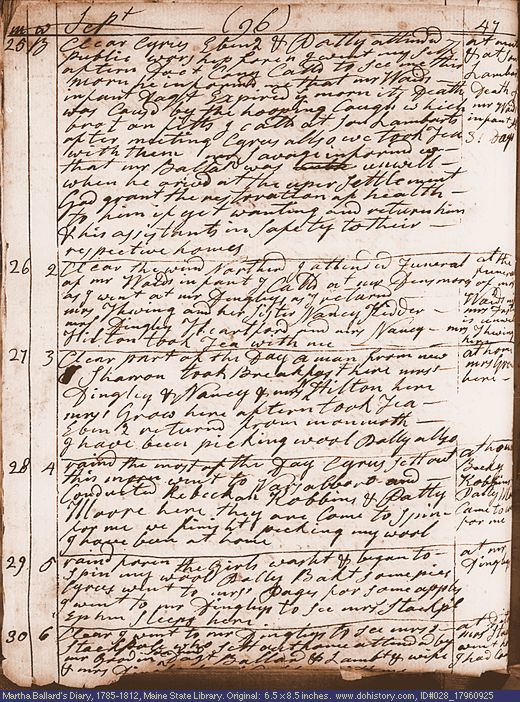 m w Sept (96) 47
25 B Clear Cyrus Ebenr & Dolly attend
publick worship foren I went my self
aftern Doct Cony Calld to see me this
morn he informd us that mr Wards
infant Dafter Expired this morn its Death
was Causd by the hooping Cough which
brot on fitts. I calld at son Lambards
after meeting Cyrus allso. we took Tea
with them mr Savage informd us
that mr Ballard was unwell
when he arivd at the uper settlement
God grant the restoration of health
to him if yet wanting and return him
& his assistants in safety to their
respective homes
at mee
& at son
Lambards
Death of
mr Wards
infant
3: Days
26 2 Clear the wind Northerd I attend ed Funeral
of mr Wards infant I Calld at mr Densmores
as I went at mr Dingleys as I returnd
mrs Thwing and her Sister Nancy Kidder
mrs Dingley Heartford and mrs Nancy
Hilton took Tea with me
at the
funeral
of mr
Wards in
mrs Thwing
here
27 3 Clear part of the Day a man from new
Sharron took Breakfast here mrs
Dingley & Nancy & mrs Hilton here
mrs Grow here aftern took Tea
Ebenr returnd from monmouth
I have been picking wool Dolly allso
at home
mrs Grow
here
28 4 raind the most of the Day Cyrus sett out
this morn went to Vassalboro and
Conducted Rebeckah Robbins & Patty
Moore here they are Come to spin
for me we finisht picking my wool
I have been at home
at home
Becky
Robbins
Came to
for me
29 5 raind foren the Girls washt & began to
spin my wool Dolly Bakt some pies
Cyrus went to mrs Pages for some apples
I went to mr Dingleys to see mrs Stackpl
Ephm sleeps here
at mr
Dingleys
30 6 Clear I went to mr Dingleys to see mrs
Stackpole who sett out home attended by
mr
& mrs Ballard & Lambd & wife
at
mrs
went
I had
Martha Ballard's Diary, 1785-1812, Maine State Library. Original: 6.5 x 8.5 inches. www.dohistory.com, ID#028_17960925